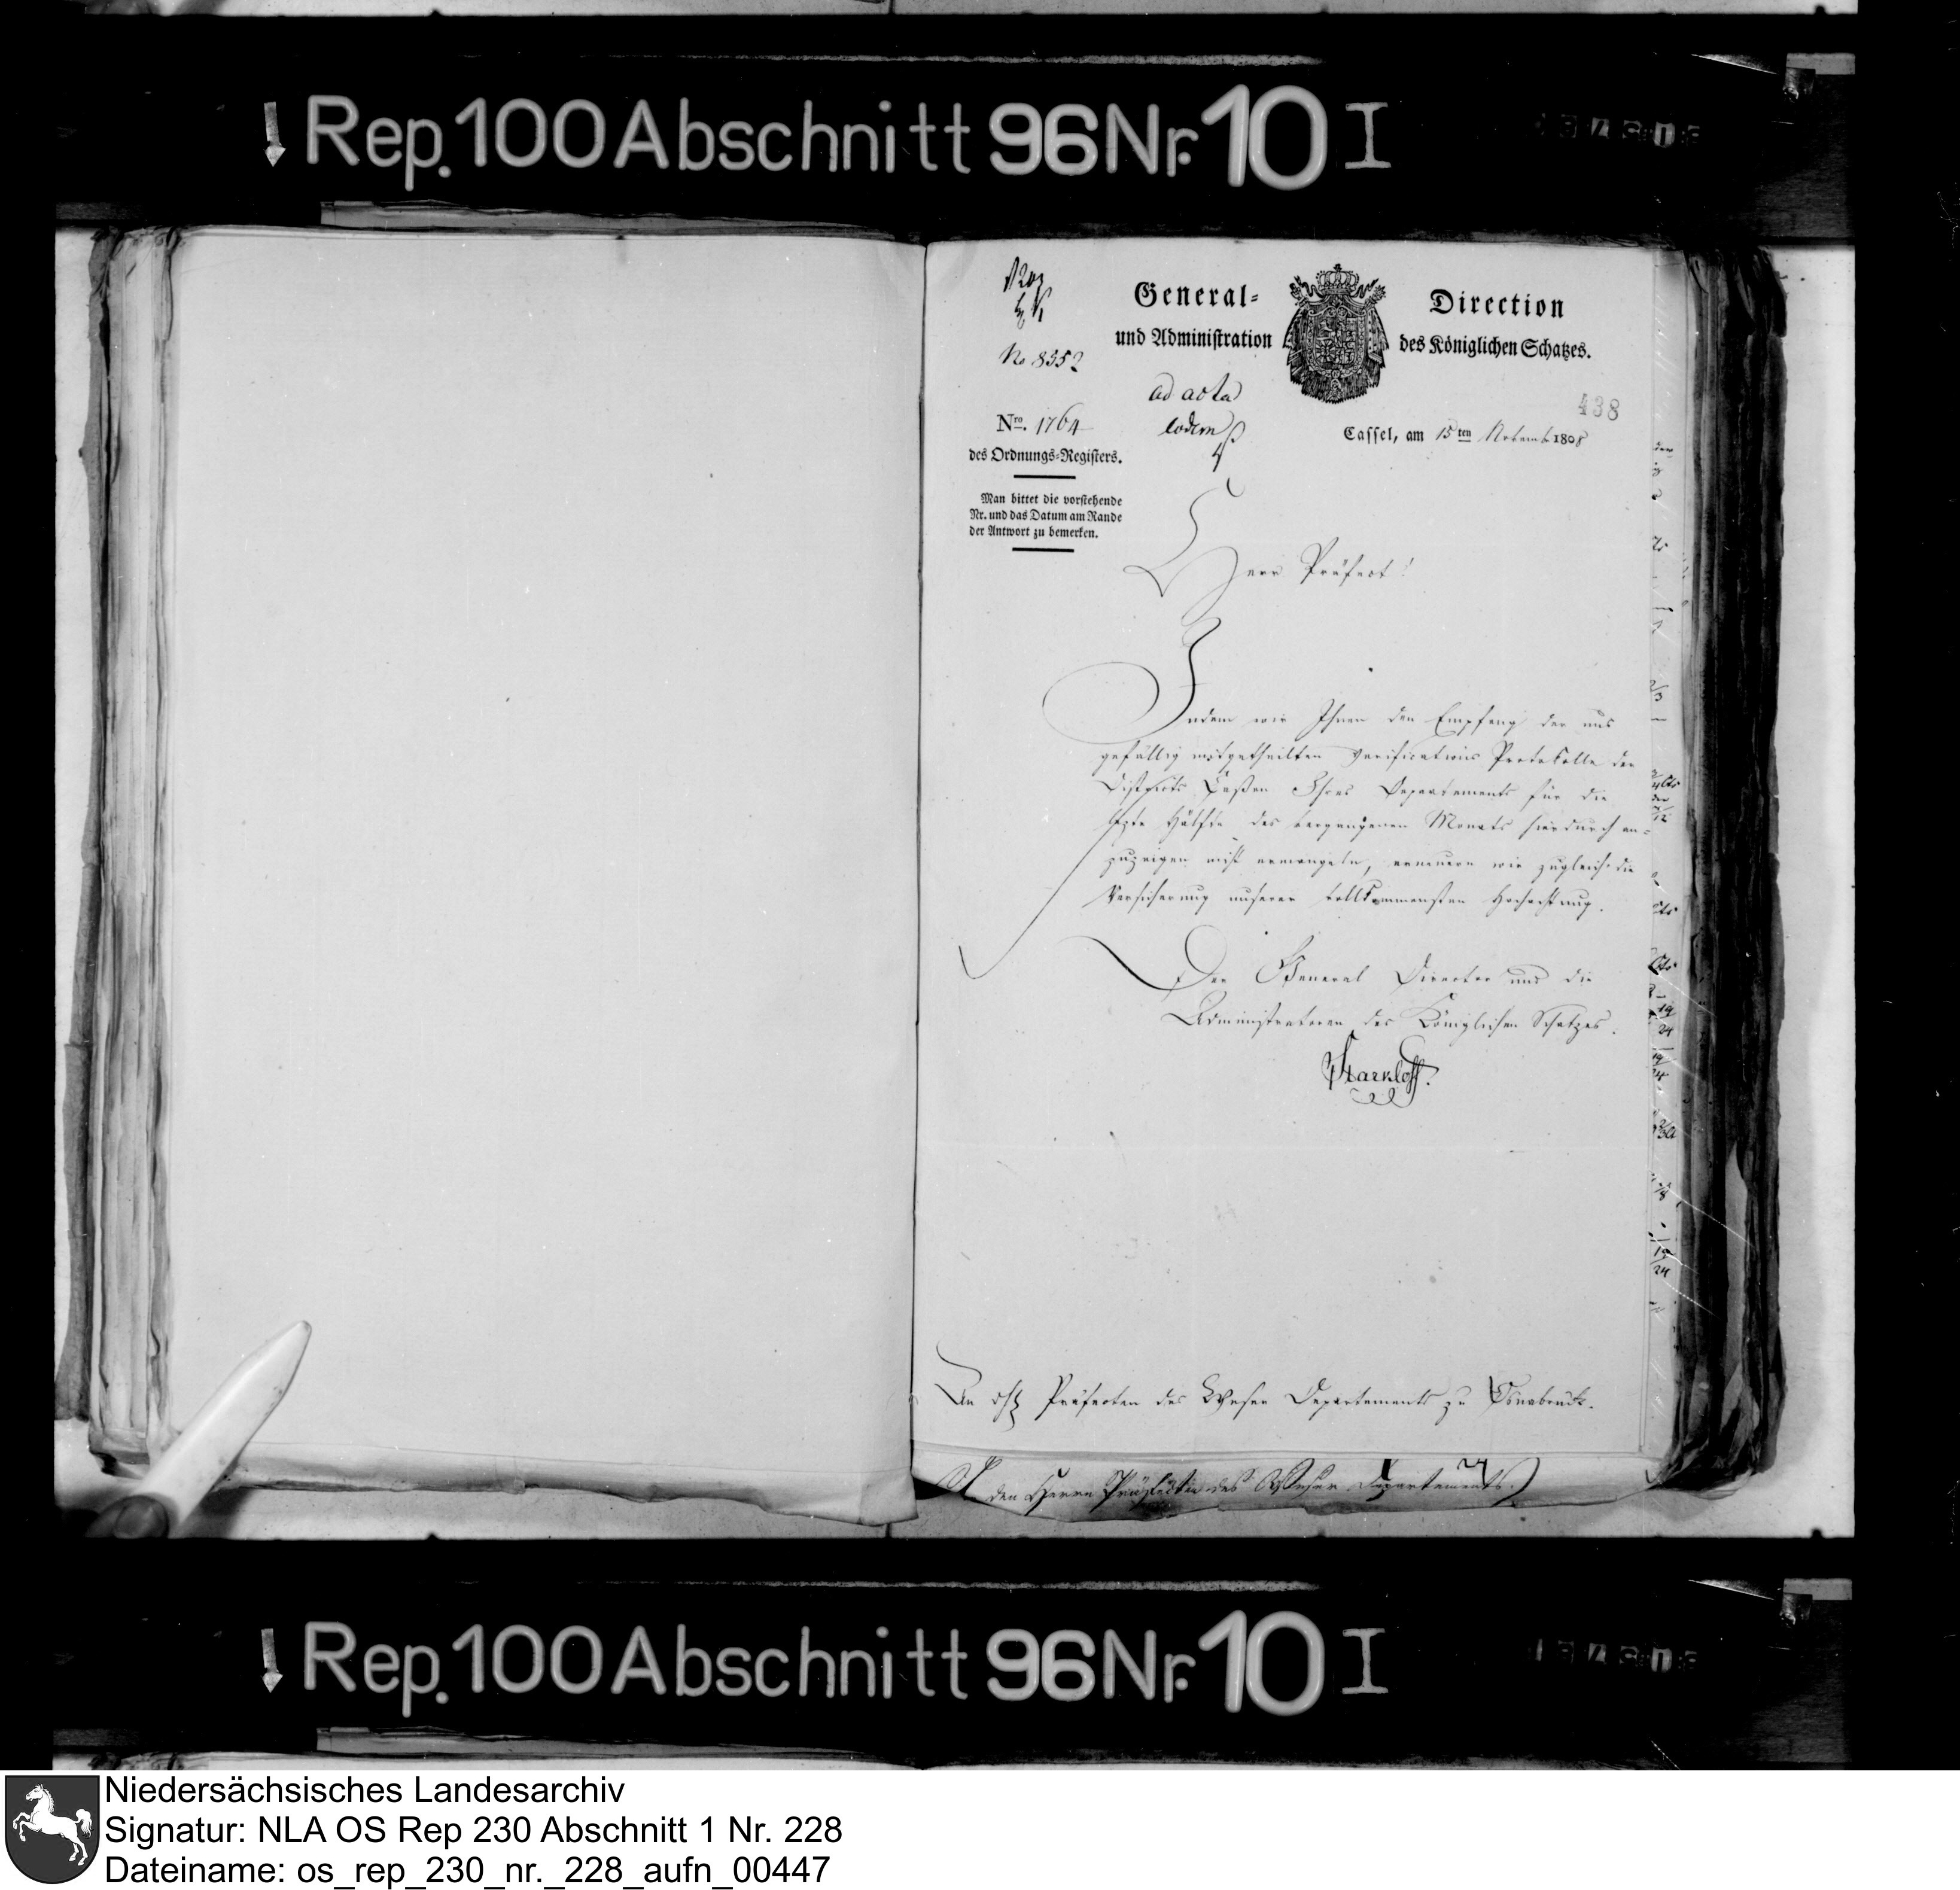 Rep. 100 Abschnitt 96 Nr. 10 I
No 8352
General-
und Administration
Direction
des Königlichen Schatzes.
ad acta
eodem
438
Nro. 1764
des Ordnungs-Registers.
Cassel, am 15ten Novemb 1808
Man bittet die vorstehende
Nr. und das Datum am Rande
der Antwort zu bemerken.
Herr Präfect!
Indem wir Ihnen den Empfang der uns
gefällig mitgetheilten Verifications Protokolle der
Districts Cassen Ihres Departements für die
lezte Hälfte des vergangenen Monats hierdurch an=
zuzeigen nicht ermangeln, erneuern wir zugleich die
Versicherung unserer vollkommensten Hochachtung.
Der General Director und die
Administratoren des Königlichen Schatzes.
An Präfecten des Weser Departements zu Osnabrück.
den Herrn Präfecten des Weser Departements
Rep. 100 Abschnitt 96 Nr. 10 I
Niedersächsisches Landesarchiv
Signatur: NLA OS Rep 230 Abschnitt 1 Nr. 228
Dateiname: os_rep_230_nr._228_aufn_00447